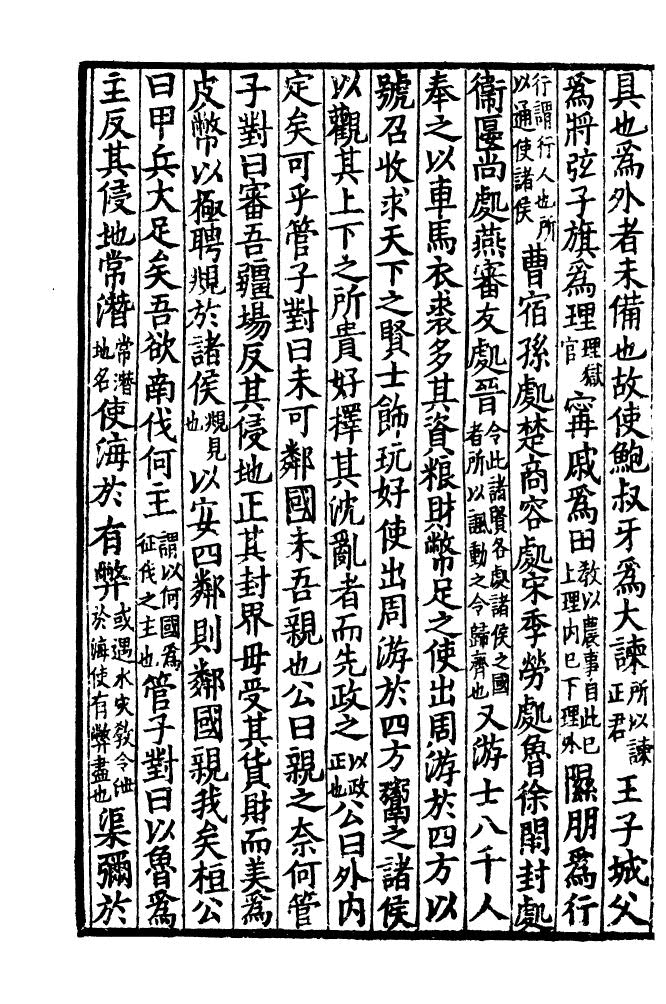 具也爲外者未備也故使鮑叔牙爲大諫所以諫正君王子城父
爲將弦子旗爲理理獄官甯戚爲田教以農事自此已上理内已下理外隰朋爲行
行謂行人也所以通使諸侯曹宿孫處楚商容處宋季勞處魯徐開封處
衞匽尚處燕審友處晉令此諸賢各處諸侯之國者所以諷動之令歸齊也又游士八千人
奉之以車馬衣裘多其資粮財幣足之使出周游於四方以
號召收求天下之賢士飾玩好使出周游於四方鬻之諸侯
以觀其上下之所貴好擇其沈亂者而先政之以政正也公曰外内
定矣可乎管子對曰未可鄰國未吾親也公曰親之奈何管
子對曰審吾疆場反其侵地正其封界毋受其貨財而美爲
皮幣以極聘覜於諸侯覜見也以安四鄰則鄰國親我矣桓公
曰甲兵大足矣吾欲南伐何主謂以何國爲征伐之主也管子對曰以魯爲
主反其侵地常潛常潛地名使海於有弊或遇水灾教令泄於海使有弊盡也渠彌於